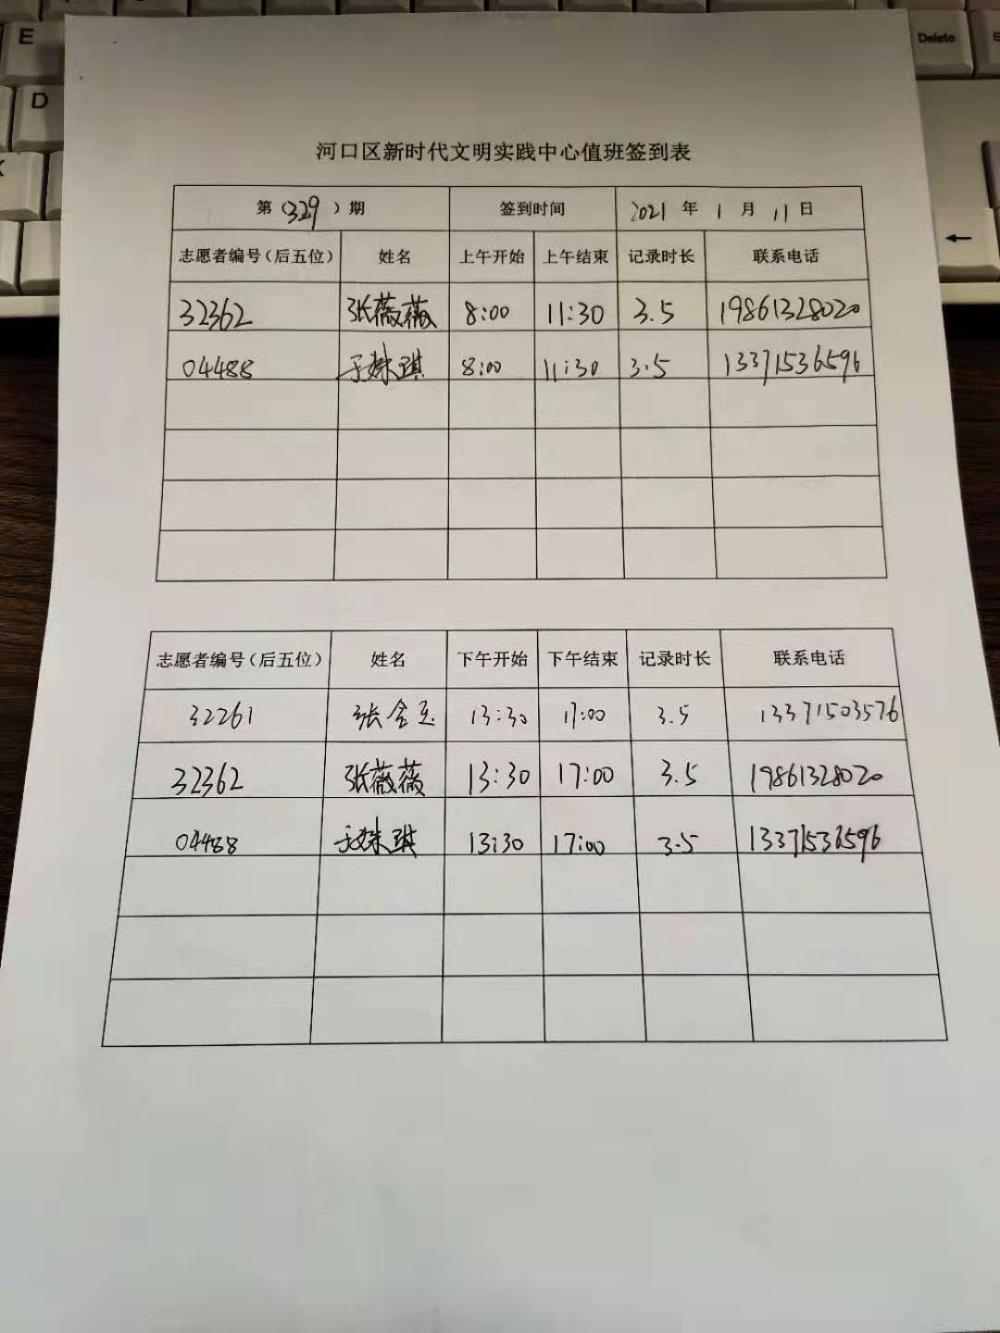 E
D
Delete
河口区新时代文明实践中心值班签到表
第（329）期 签到时间 2021 年 1 月 11 日
志愿者编号（后五位） 姓名 上午开始 上午结束 记录时长 联系电话
32362 张薇薇 8:00 11:30 3.5 19861328020
04488 于姝琪 8:00 11:30 3.5 13371536596
志愿者编号（后五位） 姓名 下午开始 下午结束 记录时长 联系电话
32261 张金玉 13:30 17:00 3.5 13371503576
32362 张薇薇 13:30 17:00 3.5 19861328020
04488 于姝琪 13:30 17:00 3.5 13371536596